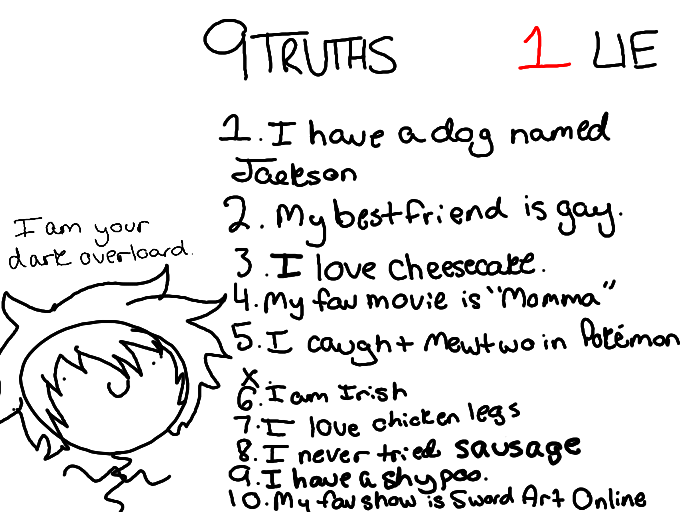 9 TRUTHS 1 LIE
1. I have a dog named
Jackson
2. My bestfriend is gay.
I am your
dark overloard.
3. I love cheesecake.
4. My fav movie is "Momma"
5. I caught Mewtwo in Pokémon
x.
6. I am Irish
7. I love chicken legs
8. I never tried sausage
9. I have a shypoo.
10. My fav show is Sword Art Online